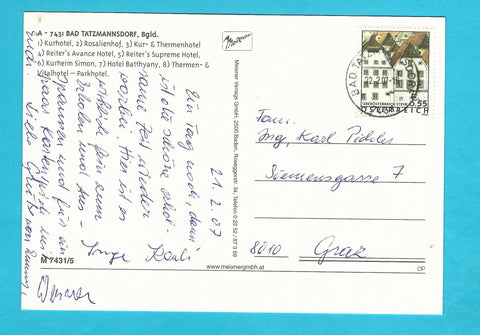 A - 7431 BAD TATZMANNSDORF, Bgld.
1) Kurhotel, 2) Rosalienhof, 3) Kur- & Thermenhotel
4) Reiter's Avance Hotel, 5) Reiter's Supreme Hotel,
6) Kurheim Simon, 7) Hotel Batthyany, 8) Thermen- &
Vitalhotel – Parkhotel.
21. 2. 07
Ein Tag noch, dann
ist die schöne
same Zeit wieder
vorbei. Hier ist es
wirklich fein zum
Erholen und Aus-
spannen und für ein
paar
euch. Liebe Grüße von
Inge
Werner
M 7431/5
Meixner
Meixner Verlags GmbH, 2500 Baden, Roseggerstr. 34, Telefon 0 22 52 / 87 3 69
www.meixnergmbh.at
BAD TATZ
22.2.07
OBERÖSTERREICH STEYR
0,55
ÖSTERREICH
Fam.
Ing. Karl Pichler
Siemensgasse 7
8010 Graz
OP